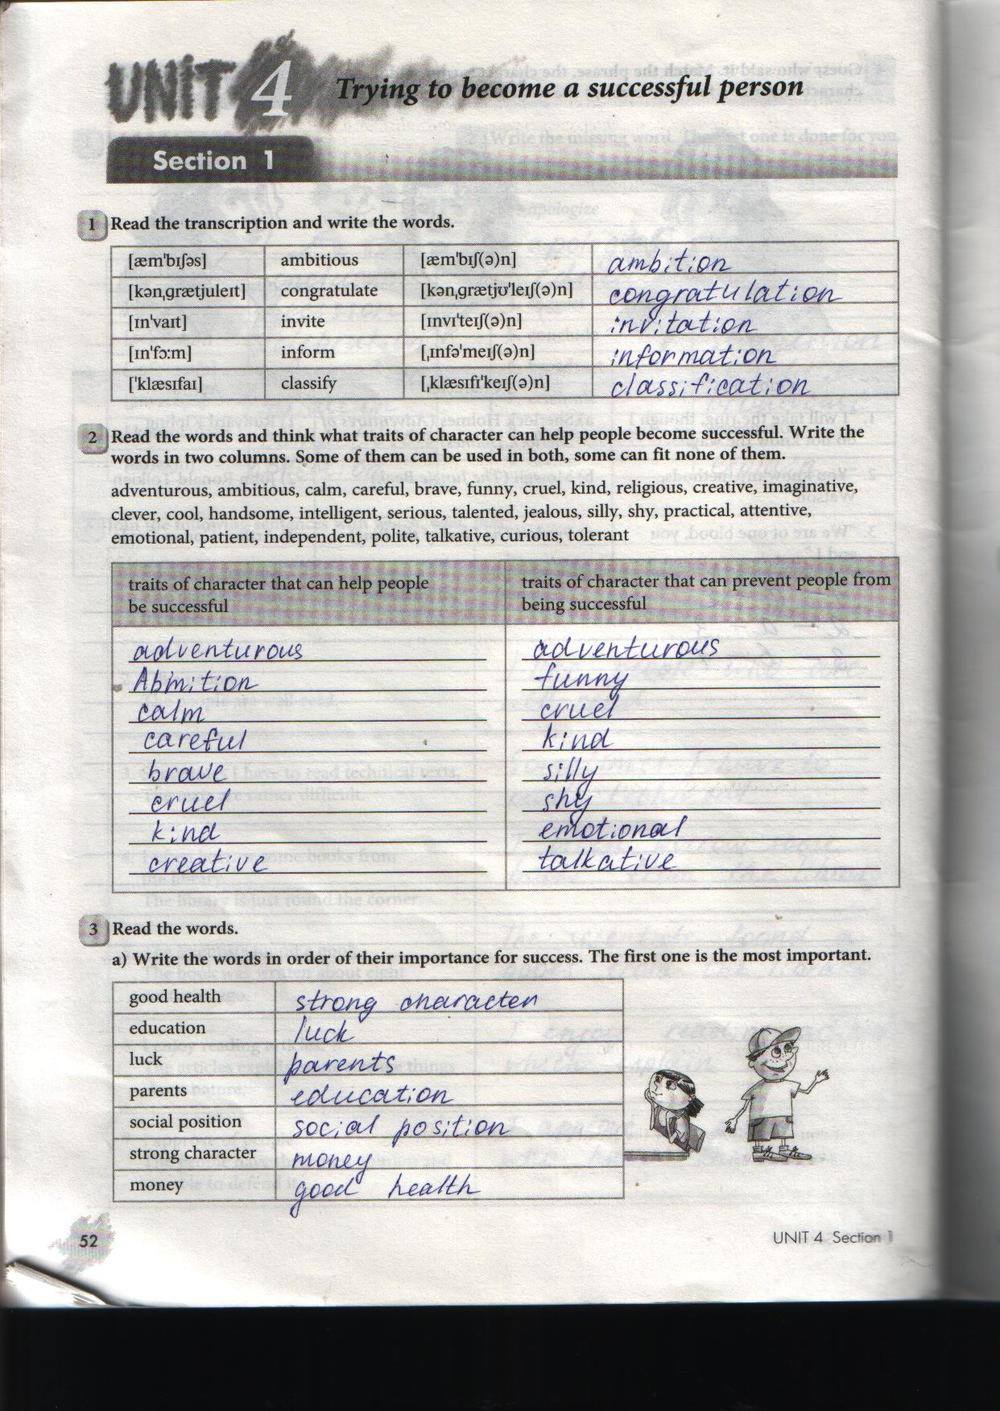 UNIT 4 Trying to become a successful person
Section 1
1 Read the transcription and write the words.
[æm'bɪʃəs] ambitious [æm'bɪʃ(ə)n] ambition
[kənˌgrætjuleɪt] congratulate [kənˌgrætjʊ'leɪʃ(ə)n] congratulation
[ɪn'vaɪt] invite [ɪnvɪ'teɪʃ(ə)n] invitation
[ɪn'fɔ:m] inform [ˌɪnfə'meɪʃ(ə)n] information
['klæsɪfaɪ] classify [ˌklæsɪfɪ'keɪʃ(ə)n] classification
2 Read the words and think what traits of character can help people become successful. Write the
words in two columns. Some of them can be used in both, some can fit none of them.
adventurous, ambitious, calm, careful, brave, funny, cruel, kind, religious, creative, imaginative,
clever, cool, handsome, intelligent, serious, talented, jealous, silly, shy, practical, attentive,
emotional, patient, independent, polite, talkative, curious, tolerant
traits of character that can help people
be successful
traits of character that can prevent people from
being successful
adventurous adventurous
Abmition funny
calm cruel
careful kind
brave silly
cruel shy
kind emotional
creative talkative
3 Read the words.
a) Write the words in order of their importance for success. The first one is the most important.
good health strong character
education luck
luck parents
parents education
social position social position
strong character money
money good health
52 UNIT 4 Section 1